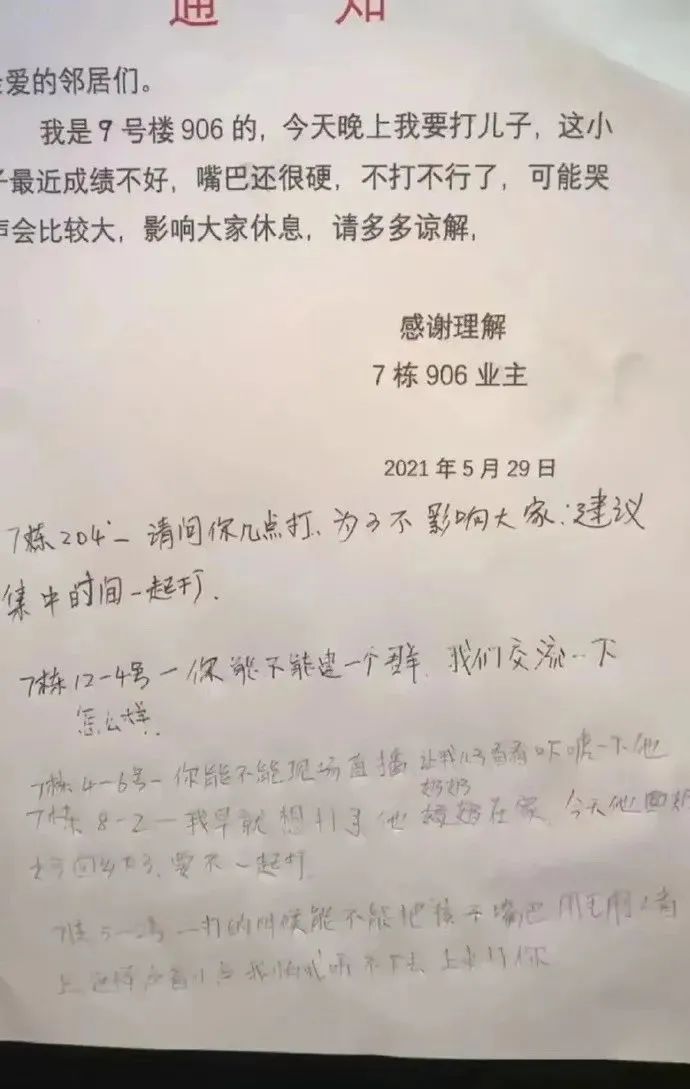 通 知
爱的邻居们。
我是9号楼906的，今天晚上我要打儿子，这小
子最近成绩不好，嘴巴还很硬，不打不行了，可能哭
声会比较大，影响大家休息，请多多谅解，
感谢理解
7栋906业主
2021年5月29日
7栋204一请问你几点打、为了不影响大家：建议
集中时间一起打.
7栋12-4号一你能不能建一个群.我们交流一下
怎么样.
7栋4-6号-你能不能现场直播 让我儿子看看吓唬一下他
奶奶
7栋8-2一我早就想打了他 在家.今天他
回 了.要不一起打.
一打的时候能不能把孩子嘴巴用毛
上 我怕我听不下去 上来打你